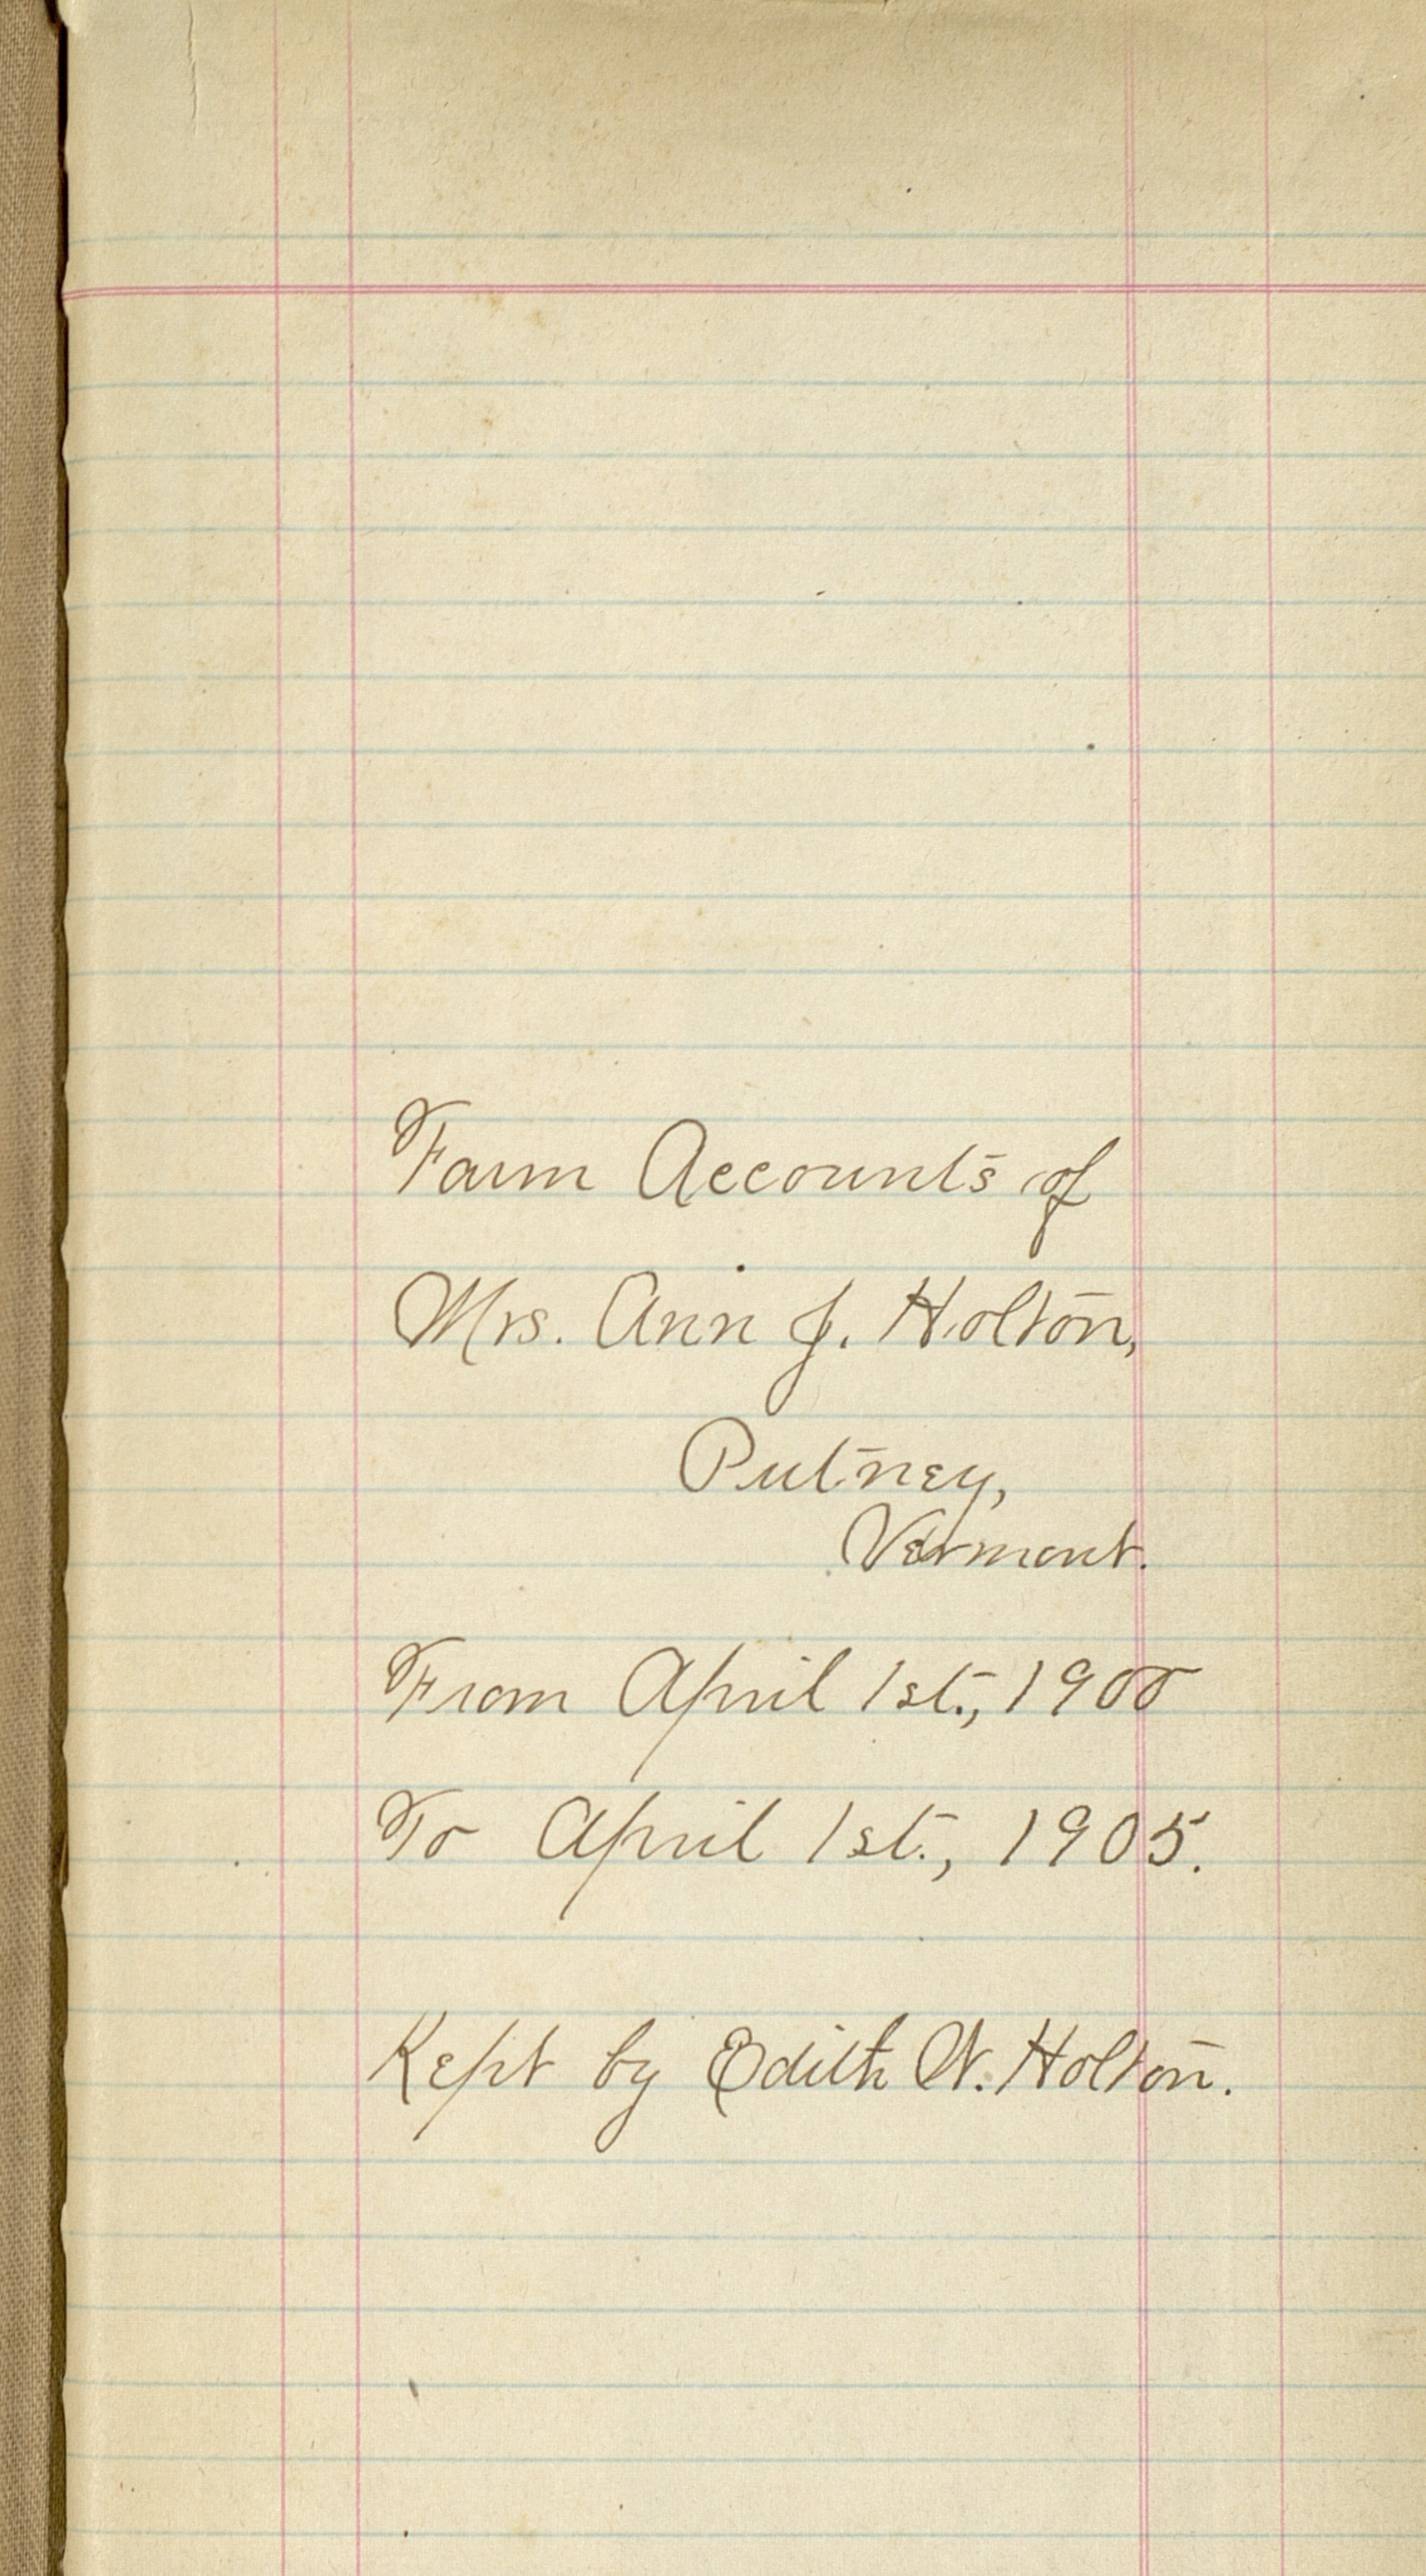 Farm Accounts of
Mrs. Ann J. Holton,
Putney,
Vermont.
From April 1st., 1900
To April 1st., 1905.
Kept by Edith W. Holton.